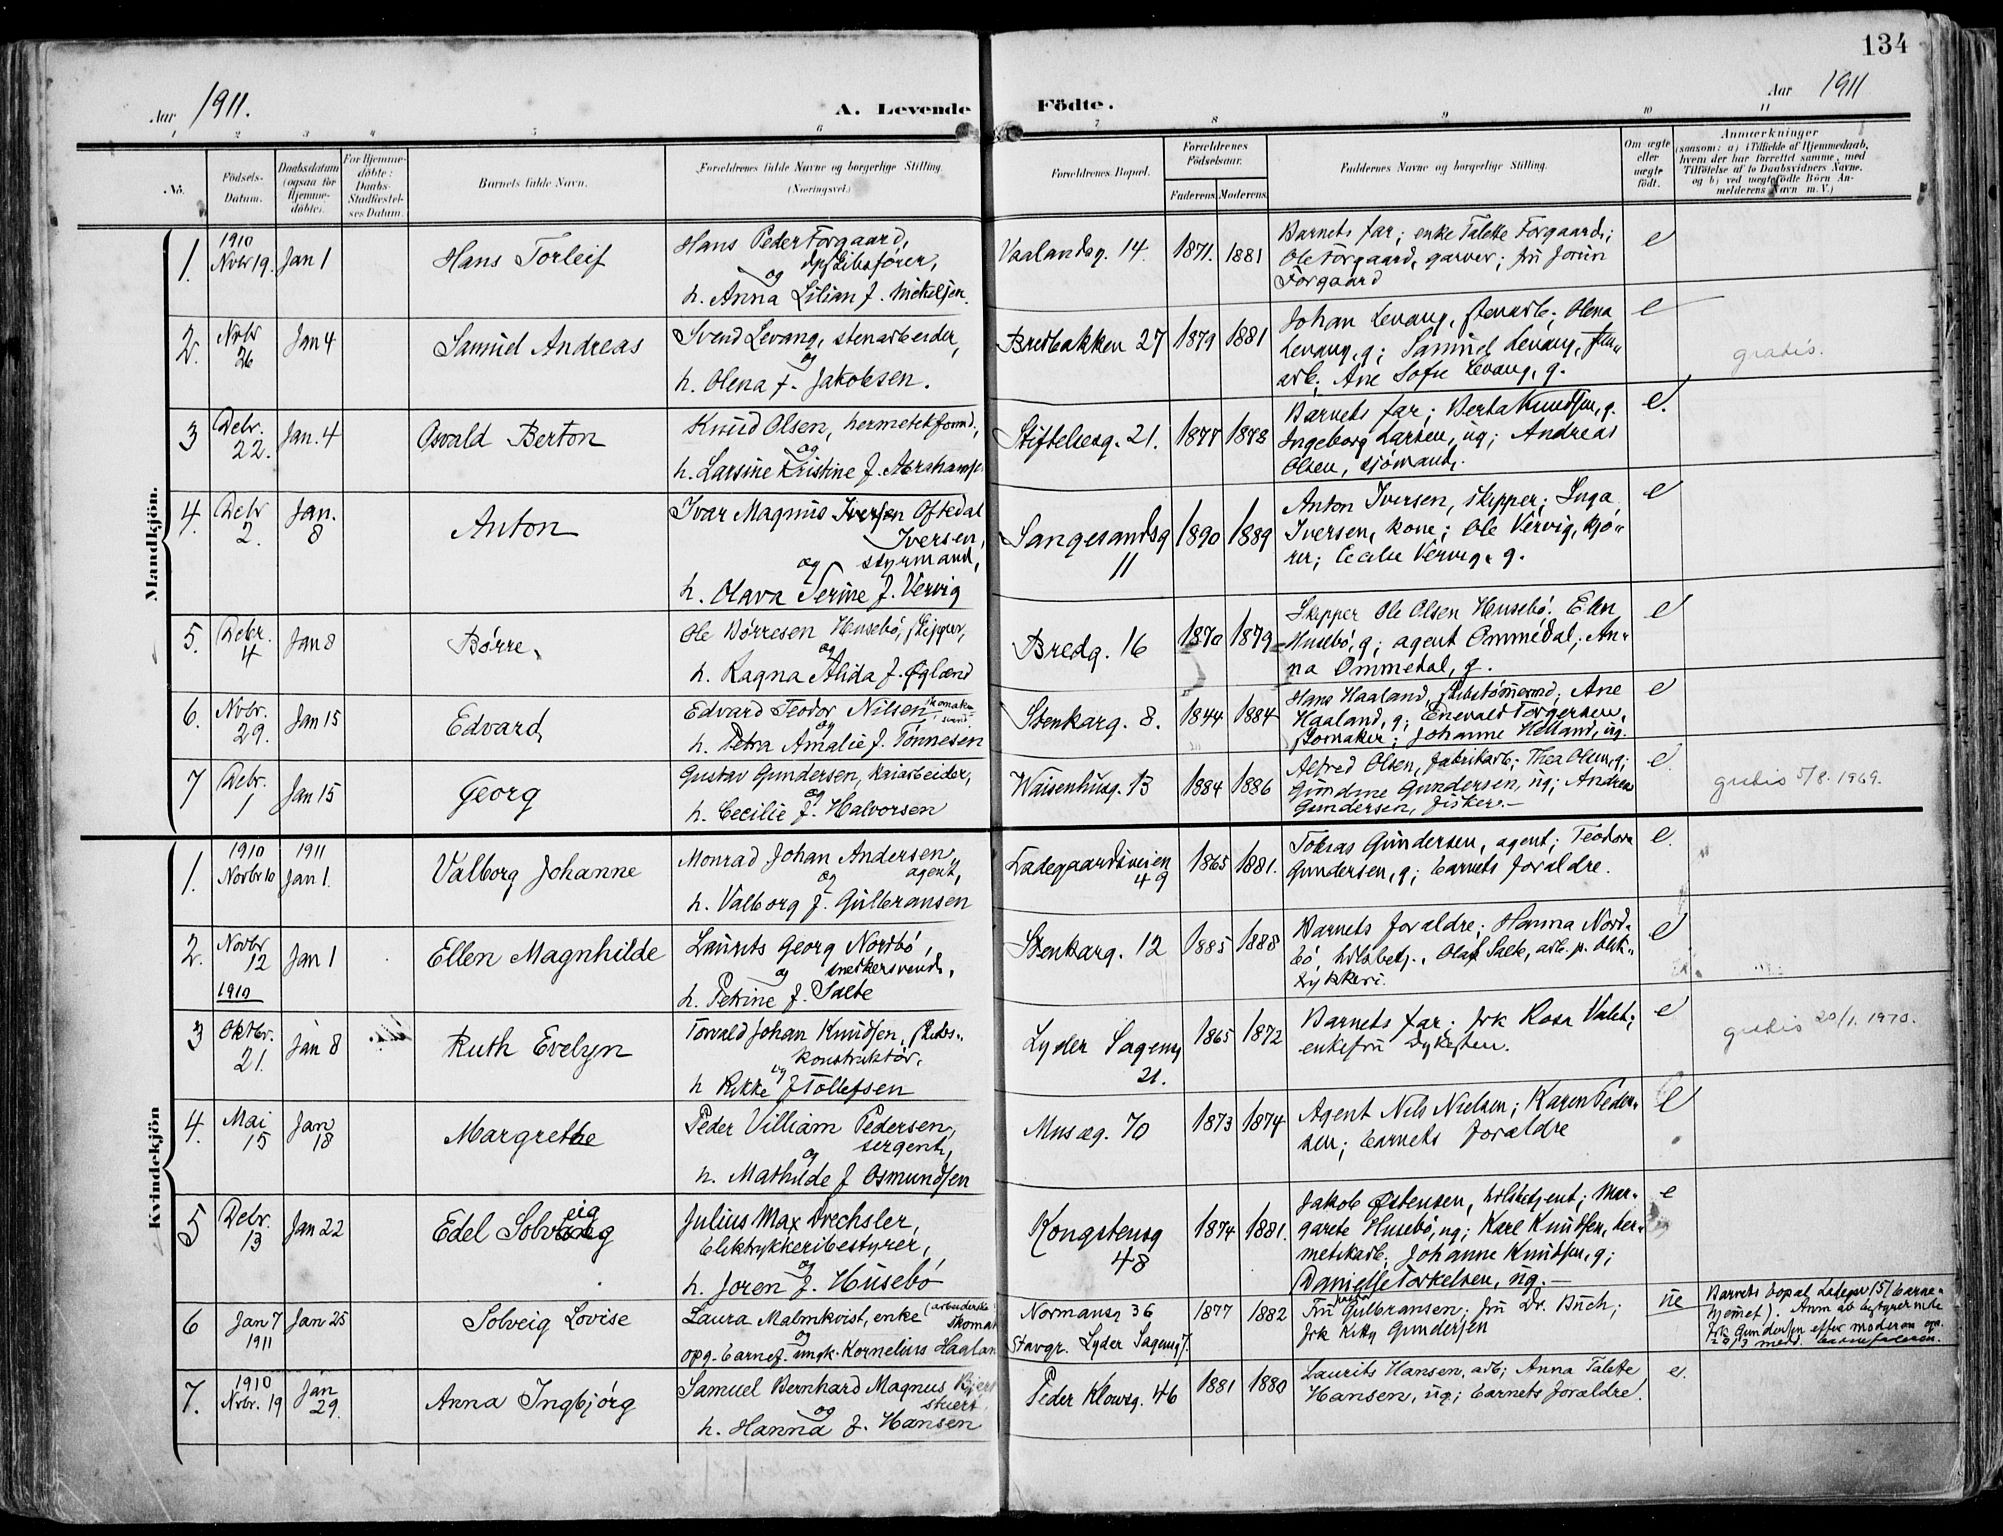 134
Aar 1911.
A. Levende Födte.
Aar 1911
1 2 3 4 5 6 7 8 9 10 11
No.
Födsels-
Datum.
Daabsdatum
(ogsaa for
Hjemme-
döbte).
For Hjemme-
döbte:
Daabs-
Stadfæstel-
ses Datum.
Barnets fulde Navn.
Forældrenes fulde Navne og borgerlige Stilling.
(Næringsvei.)
Forældrenes Bopæl.
Forældrenes
Födselsaar.
Faderens. Moderens.
Faddernes Navne og borgerlige Stilling.
Om ægte
eller
uægte
født.
Anmærkninger
(saasom: a) i Tilfælde af Hjemmedaab,
hvem der har forrettet samme, med
Tilföielse af to Daabsvidners Navne,
og b) ved uægtefödte Börn An-
melderens Navn m. V.)
Mandkjön.
1. 1910 Novbr 19. Jan 1
Hans Torleif
Hans Peder Torgaard,
og
h. Anna Lilian f. Michelsen.
Vaalandsg. 14. 1871. 1881
Barnets far; enke Talette Torgaard;
Ole Torgaard, garver; fru Jorun
Torgaard
e
2. Novbr 26 Jan 4
Samuel Andreas
Svend Levang, stenarbeider,
og
h. Olena f. Jakobsen.
Bredbakken 27 1879 1881
Johan Levang, stenarb; Olena
Levang, g; Samuel Levang, sten„
arb; Ane Sofie Levang, g.
e
gratis.
3 Debr. 22. Jan. 4
Osvald Berton
Knud Olsen, hermetikform,
og
h. Larsine Kristine f. Abrahams
Stiftelsesg. 21. 1877 1878
Barnets far; Berta Knudsen, g.
Ingeborg Larsen, ug; Andreas
Olsen, sjömand.
e.
4. Debr 2. Jan. 8
Anton
Ivar Magnus Iversen Oftedal
Iversen,
og styrmand,
h. Olava Serine f. Vervig
Sangesandsg 11 1890 1889
Anton Iversen, skipper; Inga
Iversen, kone; Ole Vervig, kjö„
rer; Cecilie Vervig, g.
e
5. Debr. 4 Jan 8
Børre,
Ole Børresen Husebö, skipper,
og
h. Ragna Alida f. Øglænd
Bredg. 16 1870 1879
Skipper Ole Olsen Husebö. Elen
Husebö, g; agent Ommedal; An-
na Ommedal, g.
e
6. Novbr. 29. Jan 15
Edvard
Edvard Teodor Nilsen
og
h. Petra Amalie f. Tønnesen
Stenkarg. 8. 1844 1884
Hans Haaland, skibstømmermd; Ane
Haaland, g; Enevald Torgersen,
skomaker; Johanne Helland, ug.
e
7 Debr. 1 Jan 15
Georg
Gustav Gundersen, kaiarbeider,
og
h. Cecilie f. Halvorsen
Waisenhusg. 13 1884 1886
Alfred Olsen, fabrikarb; Thea Olsen, g;
Gundine Gundersen, ug; Andreas
Gundersen, fisker.—
e.
gratis 5/8. 1969.
Kvindekjön
1. 1910 Novbr 10 1911 Jan 1.
Valborg Johanne
Monrad Johan Andersen
og agent,
h. Valborg f. Gulbransen
Ladegaardsveien 49 1865 1881.
Tobias Gundersen, agent; Teodora
Gundersen, g; barnets forældre.
e.
2. Novbr 12 1910 Jan 1
Ellen Magnhilde
Laurits Georg Nordbö,
og snekkersvend,
h. Petrine f. Salte
Stenkarg. 12 1885 1888
Barnets forældre; Hanna Nord-
bö, hdlsbetj., Olaf Salte, arb. p. blik„
trykkeri.
e
3 Oktbr. 21. Jan 8
Ruth Evelyn
Torvald Johan Knudsen, skibs„
konstruktør,
og
h Rikke f Tollefsen
Lyder Sagensg 21. 1865 1872
Barnets far; frk Rosa Valet;
enkefru
e
gratis 20/1. 1970.
4. Mai 15 Jan 18
Margrethe
Peder Villiam Pedersen,
og sergent,
h. Mathilde f Osmundsen
Musæg. 70 1873 1874
Agent Nils Nielsen; Karen Peder„
sen; barnets forældre
e
5 Debr. 13 Jan 22
Edel Solveig
Julius Max Drechsler,
bliktrykkeribestyrer,
og
h. Joren f. Husebö
Kongstensg 48 1874 1881.
Jakob Østensen, hdlsbetjent; Mar-
garete Husebö, ug; Karl Knudsen, her-
metikarb; Johanne Knudsen, g;
Danielle Torkelsen, ug.—
e
6 Jan 7 1911 Jan 25
Solveig Lovise
Laura Malmkvist, enke (arbeiderske
og
opg. barnef. ungk. Kornelius Haalan
Normansg 36
Stavgr. Lyder Sagensg 7. 1877 1882
Fru Gulbransen; fru Dr. Buch;
frk Kitty Gundersen
ue
Barnets
hjemet). Anm. af bestyrerinde
frk Gundersen efter moderen
7. 1910 Novbr. 19 Jan 29.
Anna Ingbjörg
Samuel Bernhard Magnus
og
h. Hanna f. Hansen
Peder Klowsg. 46 1881 1880
Laurits Hansen, arb; Anna Talette
Hansen, ug; barnets forældre.
e.